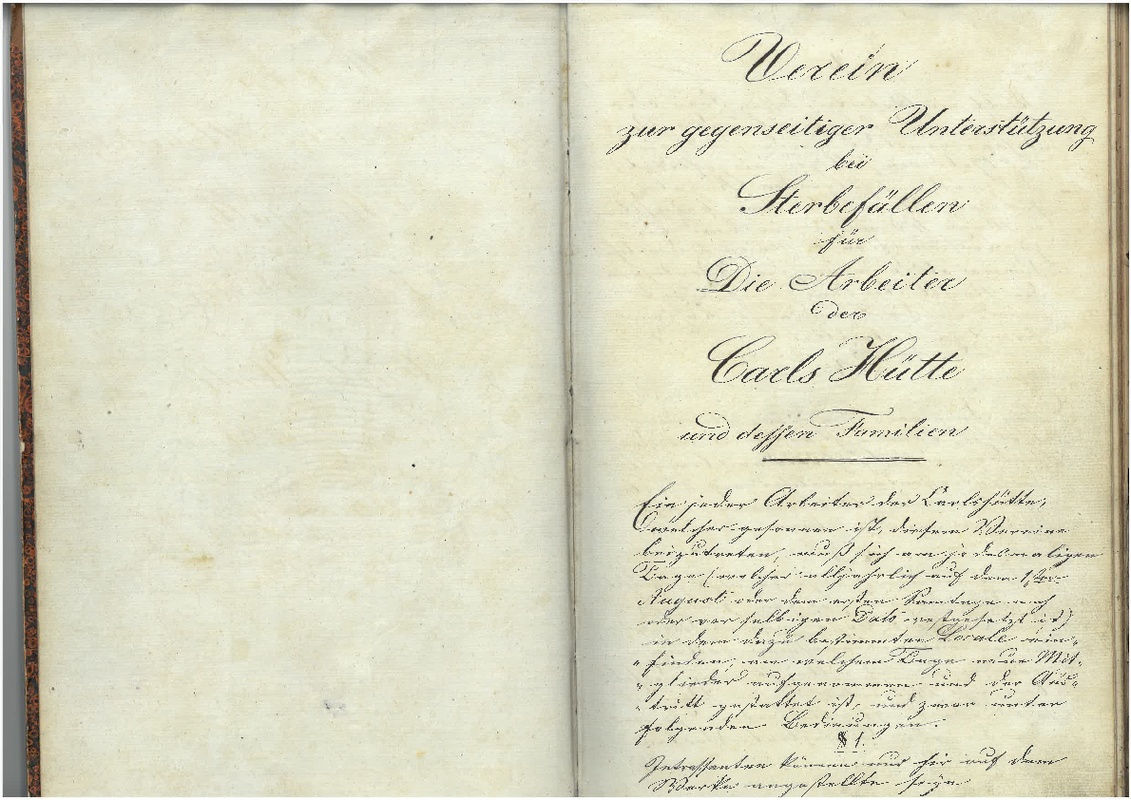 Verein
zur gegenseitiger Unterstützung
bei
Sterbefällen
für
Die Arbeiter
der
Carls Hütte
und dessen Familien
Ein jeder Arbeiter der Carlshütte,
welcher gesonnen ist, diesem Vereine
beizutreten, muß sich am jedesmaligen
Tage (welcher alljährlich auf dem 1sten
Augusti oder dem ersten Sontage nach
oder vor selbigen Dato festgesetzt ist)
in dem dazu bestimmten Locale ein-
finden, an welchem Tage neue Mit-
glieder aufgenommen und der Aus-
tritt gestattet ist, und zwar unter
folgenden Bedinungen.
§ 1.
Interessenten können nur hir auf dem
Werke angestellte seyn